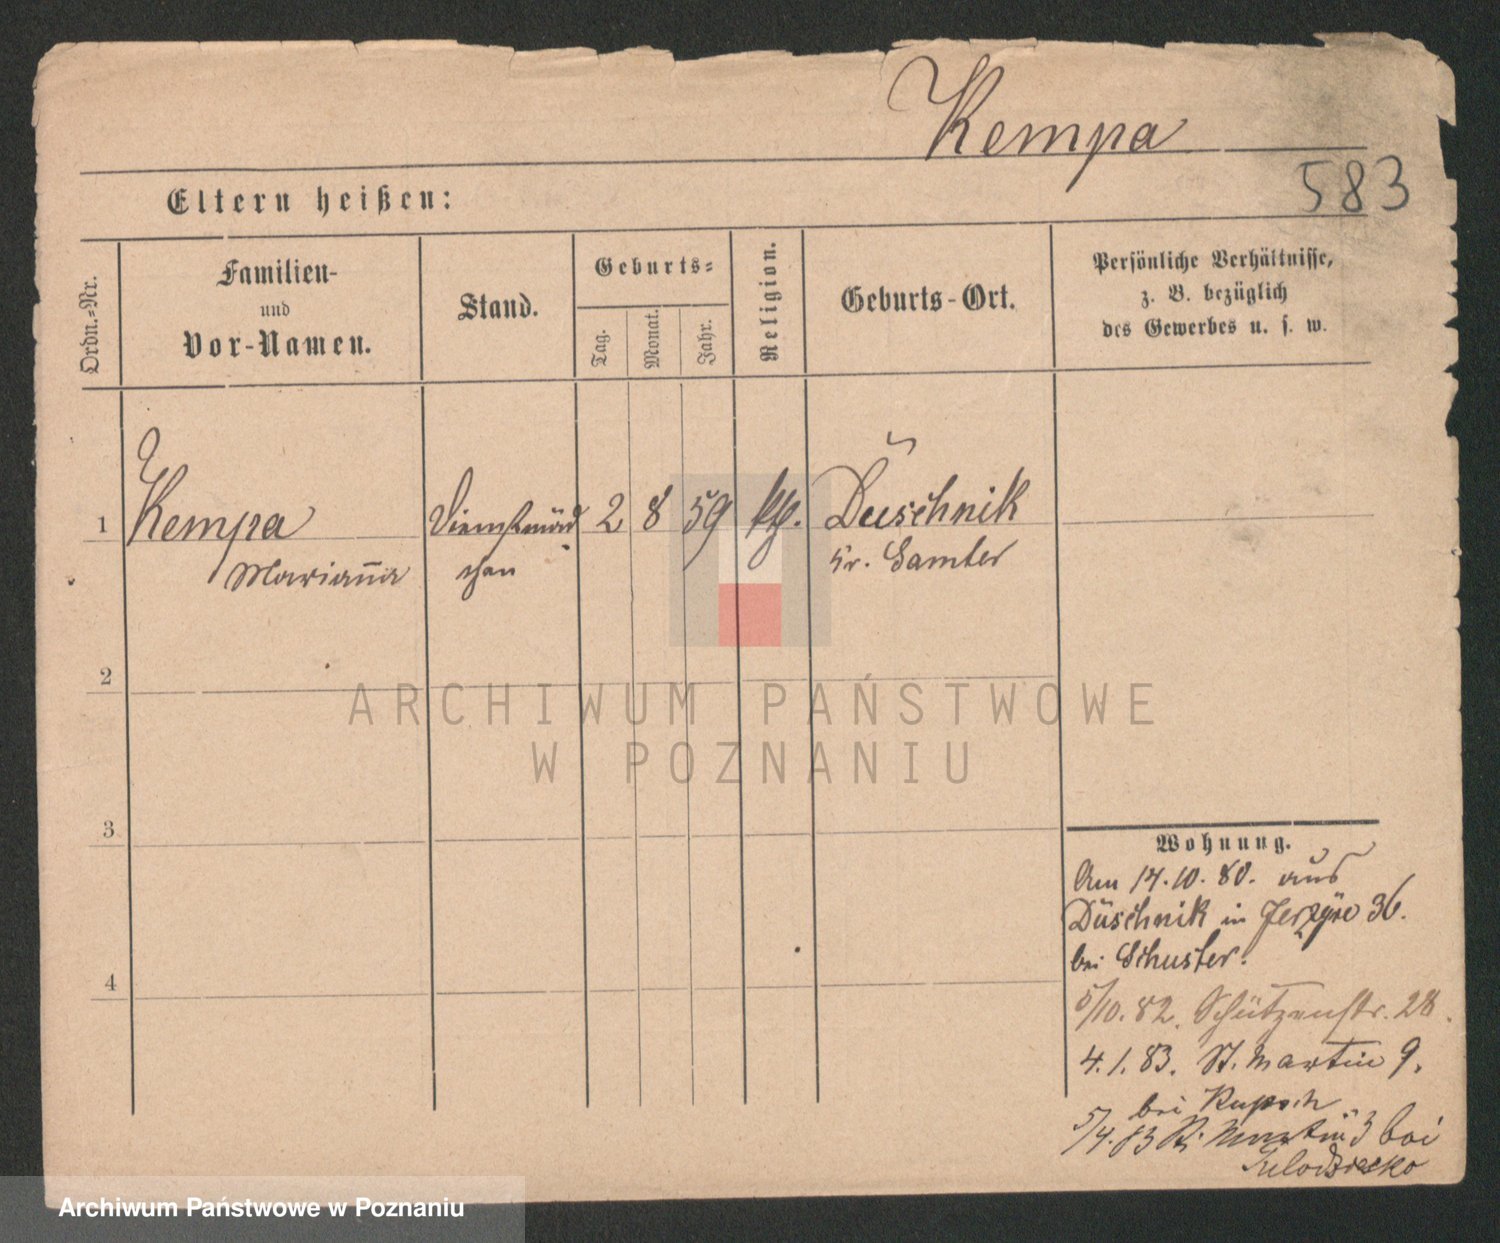 Kempa
583
Eltern heißen:
Ordn.=Nr.
Familien-
und
Vor-Namen.
Stand.
Geburts=
Tag.
Monat.
Jahr.
Religion.
Geburts-Ort.
Persönliche Verhältnisse,
z. B. bezüglich
des Gewerbes u. s. w.
1
Kempa
Marianna
Dienstmäd
chen
2
8
59
kth.
Duschnik
Kr. Samter
2
ARCHIWUM PAŃSTWOWE
W POZNANIU
3
Wohnung.
Am 14.10.80. aus
Duschnik in 36.
bei Schuster.
4
5/10.82. Schützenstr. 28.
4.1.83. St. Martin 9.
bei
5/4.83 St. Martin 3 bei
Archiwum Państwowe w Poznaniu